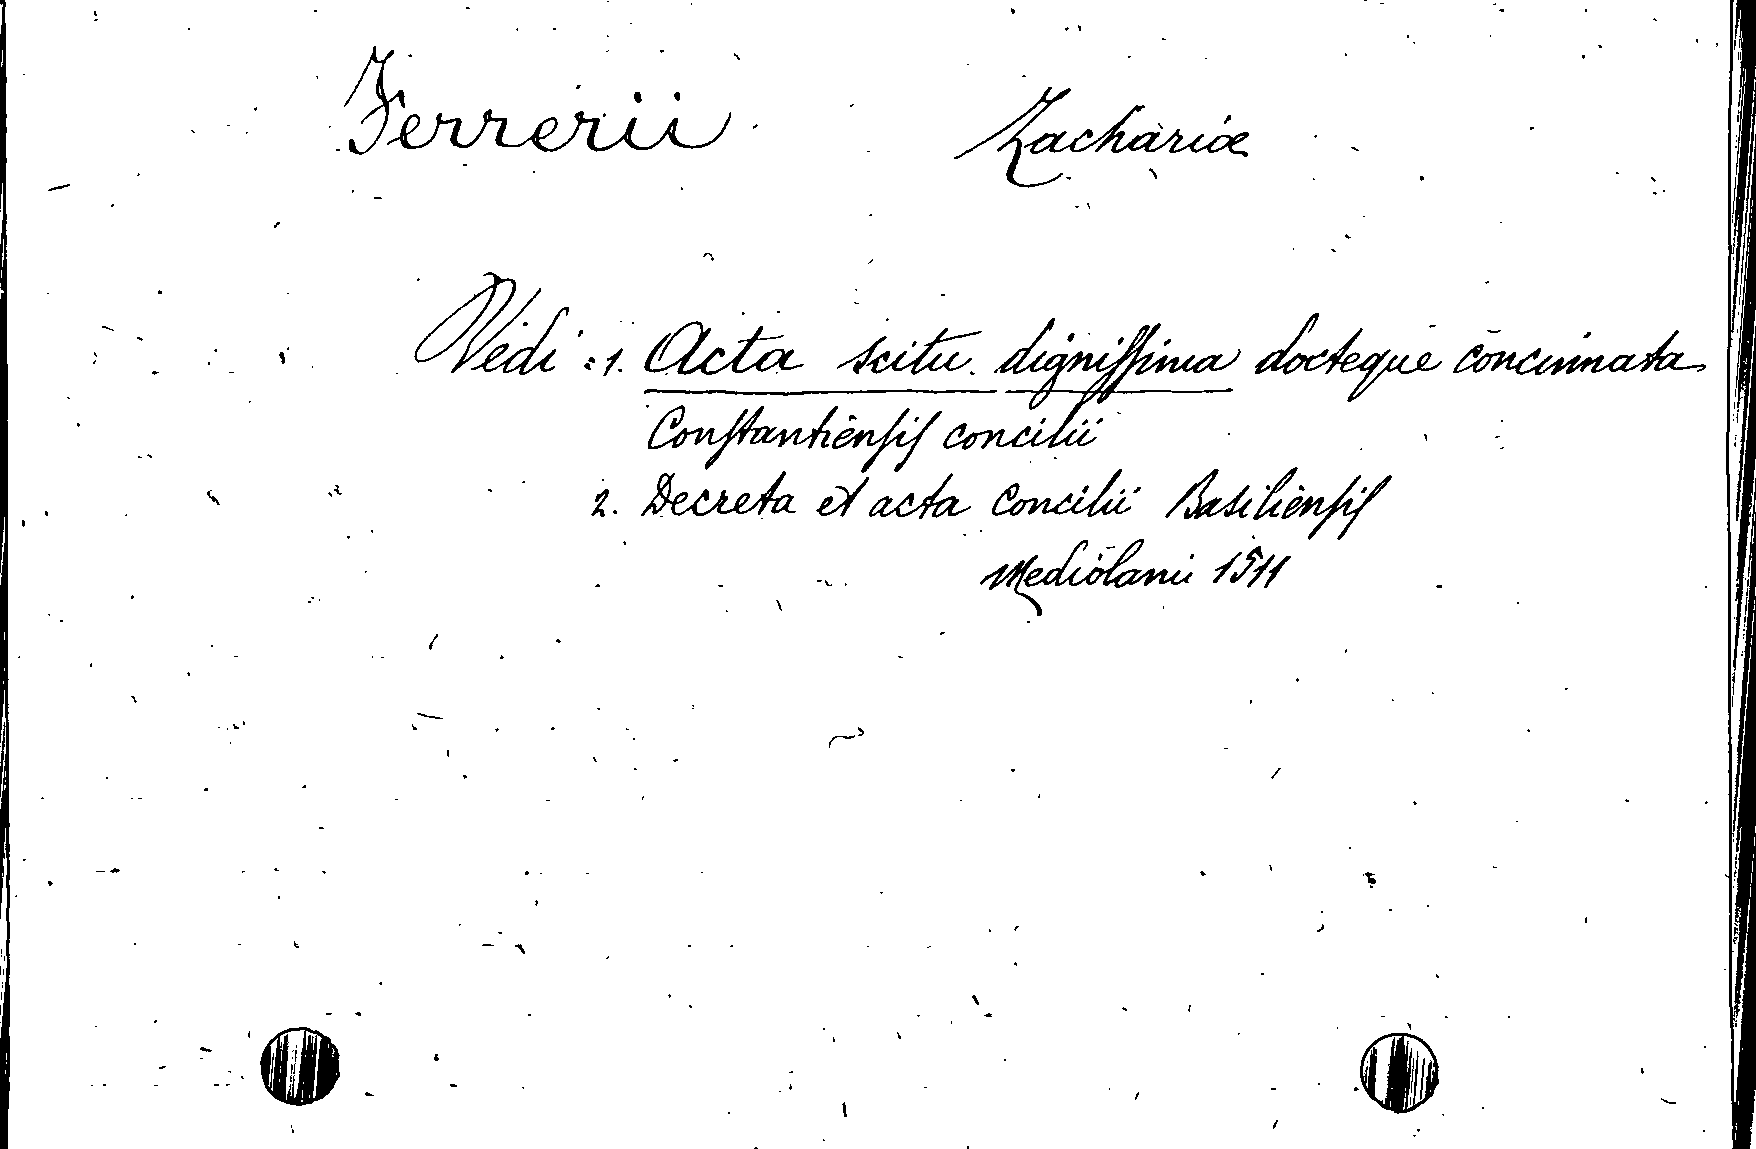 Ferrerii Zachariæ
Vedi: 1. Acta scitu digniſſima docteque concinnata
Conſtantienſiſ concilii
2. Decreta et acta Concilii Basilienſiſ
Mediolani 1511